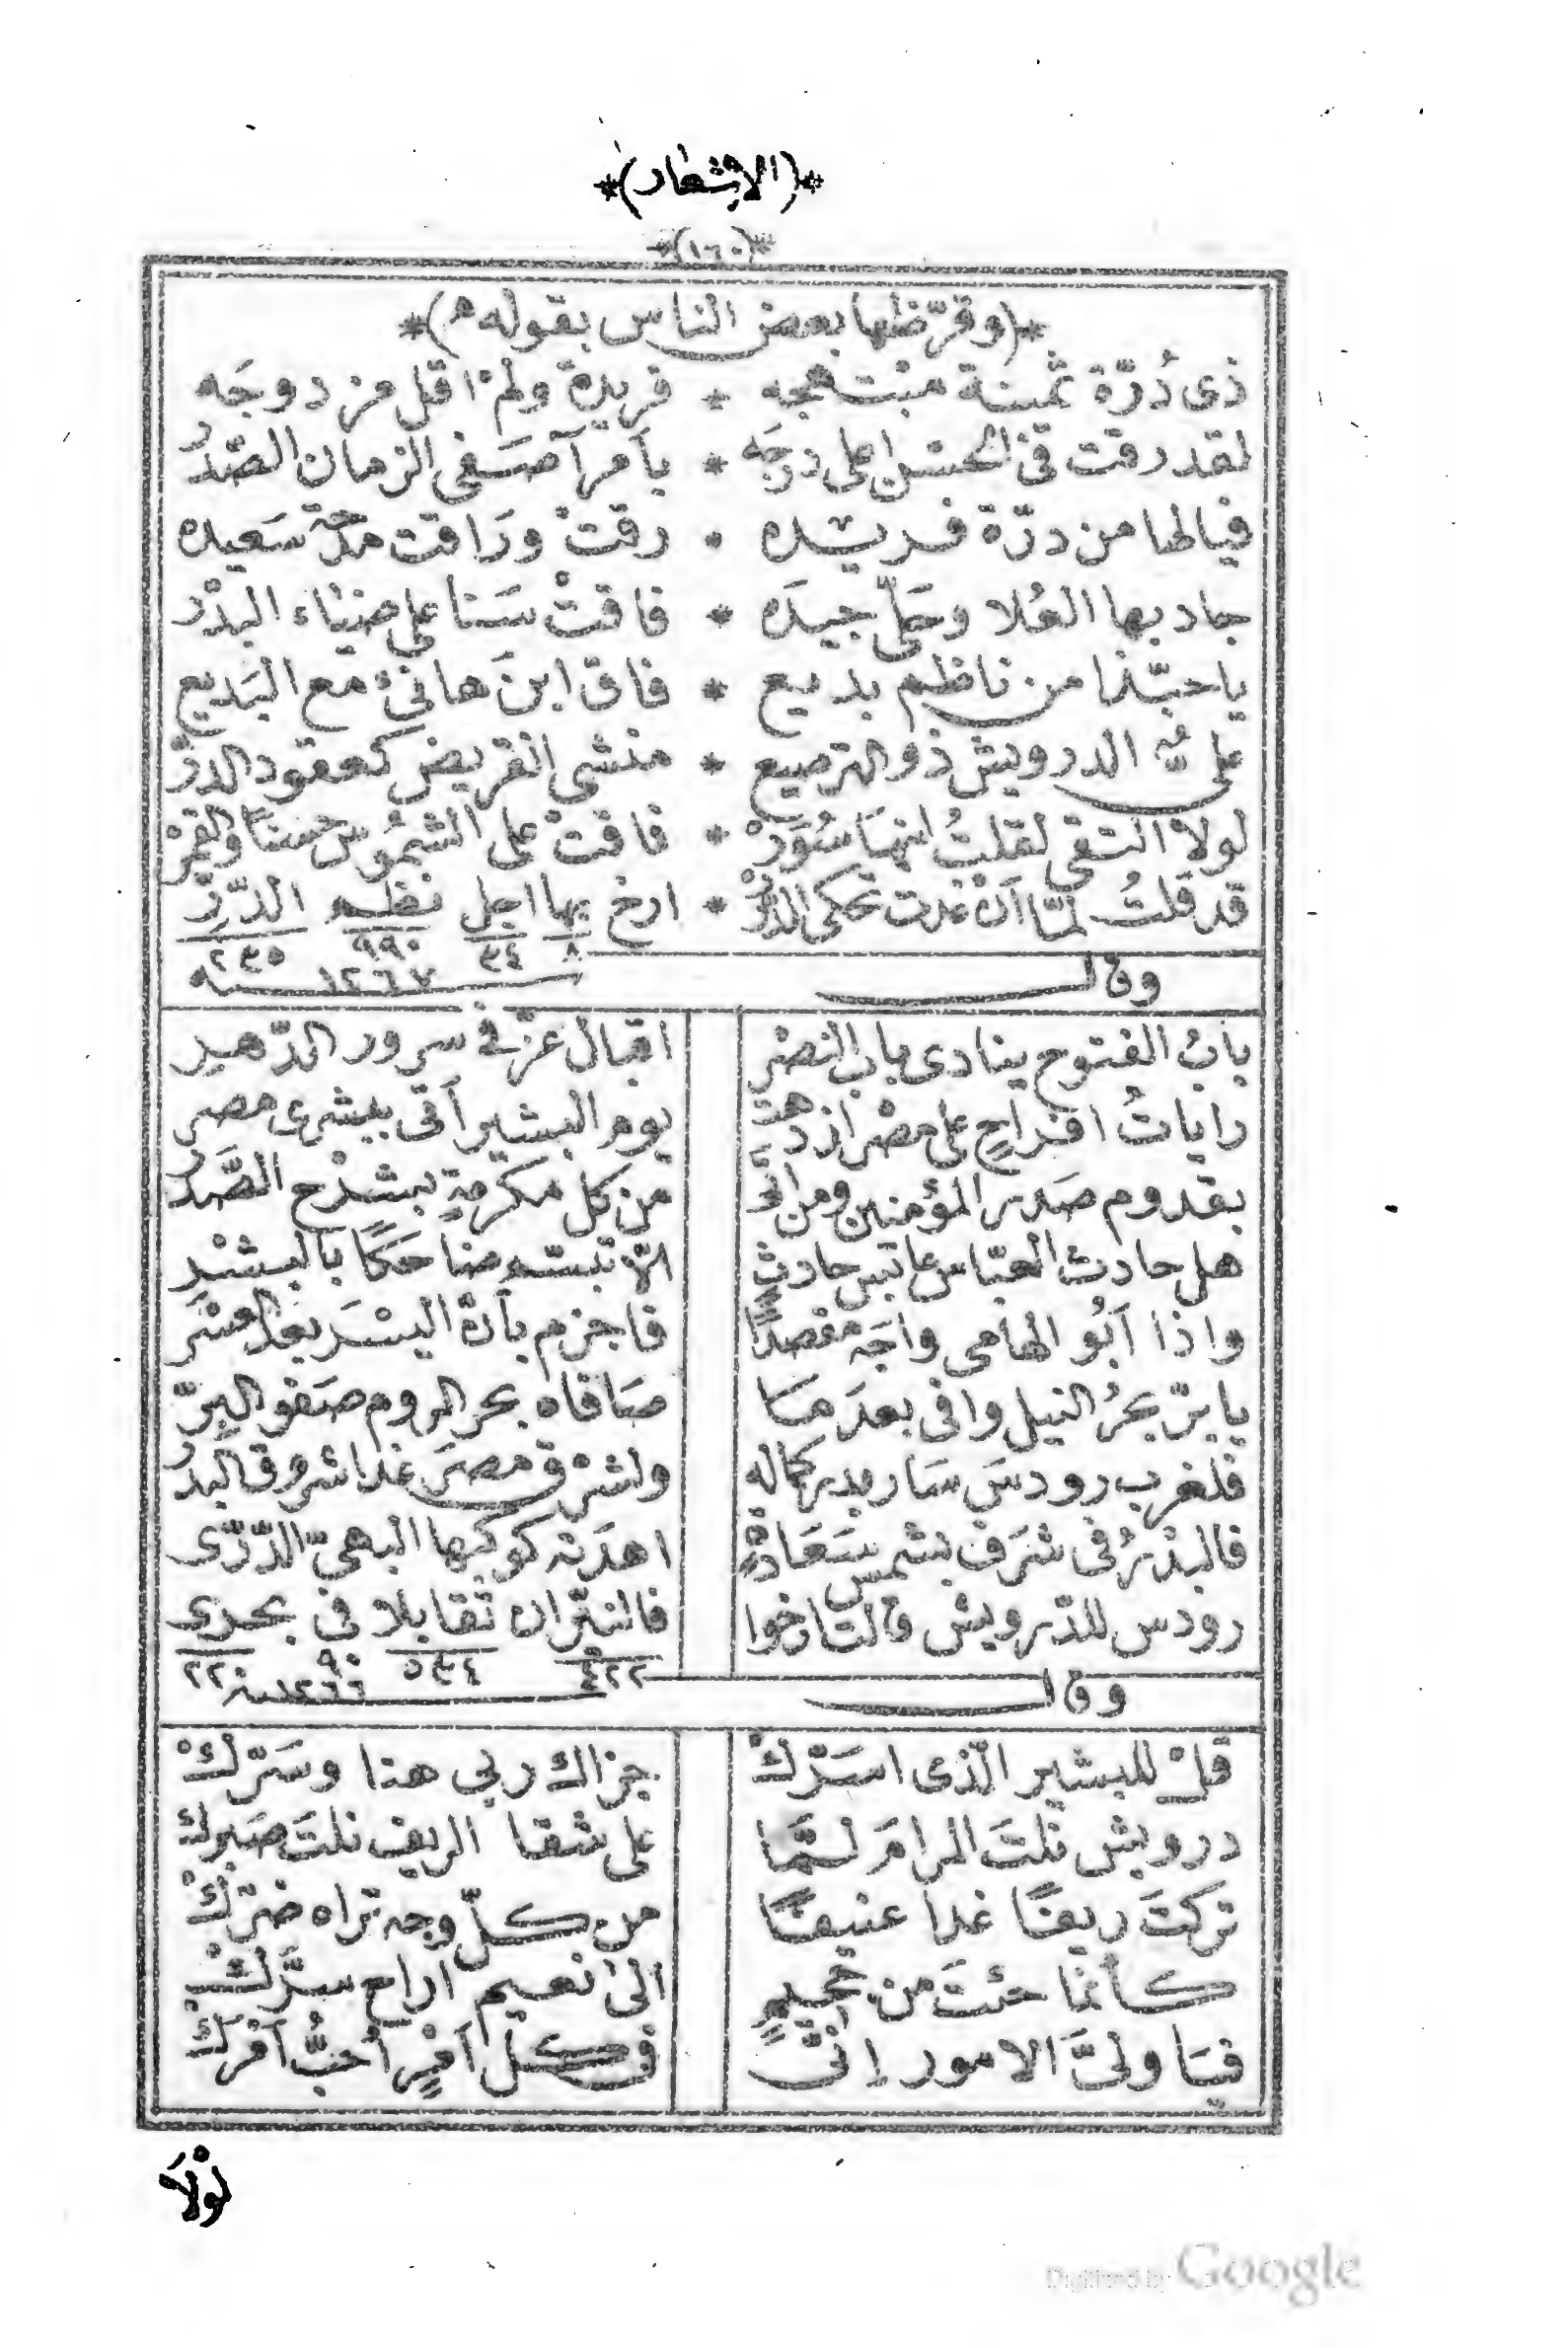 *(الاشعار)*
*(١٦٠)*
*(وقرّظها بعض الناس بقوله م)*
ذى دُرّة ثمينة مبتهجه * فريدة ولم اقل مزدوجَه
لقد رقت فى الحسن اعلى درجَه * يا مرآ صَفى الزمان الصّدر
فيالها من درّة فريده * رقتْ ورَاقت مدحة سَعيده
جاد بها العُلا وحَلّى جيدَه * فاقتْ سَنا على ضياء البدْر
يا حبّذا من ناظم بديع * فاق ابنَ هانئ مع البَديع
على الدرويش ذو الترصيع * منشى القريض كعقود الدرّ
لولا التقى لقلتُ انهَا سُوَرْ * فاقتْ على الشمُوس حسنًا والقمَرْ
قد قلتُ لمّا اَنْ غدت تحكى الدُرَرْ * ارخ بها اجل نظم الدّرّ
٨ ٣٤ ٩٩٠ ٢٣٥
سنه ١٢٦٧
وقال
بابُ الفتوح ينادى باب النصْر
اقبال عزّ فى سرور الدّهر
راياتُ افراحٍ على مصْر ازدهت
يوم البشير اَتى ببشرى مصر
بقدوم صَدر المؤمنين ومن اتى
من كل مكرمةٍ بشرْح الصَّدر
هل حادث العبّاس عابس حادثٍ
الّا تبسّم ضاحكًا بالبشْر
واذا اَبُو الهامى واجَه مقصدًا
فاجزم بأنّ اليسْر بعد العسْر
يا برّ بحرُ النيل وافى بعدَ مَا
صَافاه بحر الروم صَفو البِرّ
فلغرب رودسَ سَار بدر كماله
ولشرْق مصرَ غدا شروق البدر
فالبدْرُ فى شَرَف بشمس سَعَادةٍ
اهدَته كوكبها البهىّ الدّرّى
رودس للدّرويش قالت ارخوا
فالنيّران تقابلا فى بحرى
٤٢٢ ٥٣٤ ٩٠ ٢٢٠
سنة ١٢٦٦
وقال
قلْ للبشير الّذى اسَرّكْ
جزاك ربى هنا وسَرّكْ
درويش نلتَ المرامَ لمّا
على شقا الريف نلتَ صَبركْ
تركتَ ريفًا غدا عنيفًا
من كلّ وجه تراه ضرّكْ
كأنما جئتَ من جحيمٍ
الى نعيم اراح سرّكْ
فيَا ولىَّ الامور إنّى
فى كل اَمْرٍ اُحبُّ اَمْركْ
لوْلَا
Digitized by Google